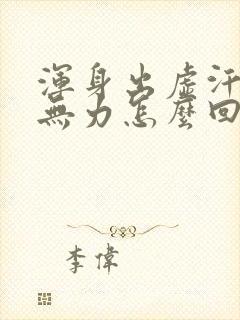 渾身出虛汗
無力怎麼回
李偉